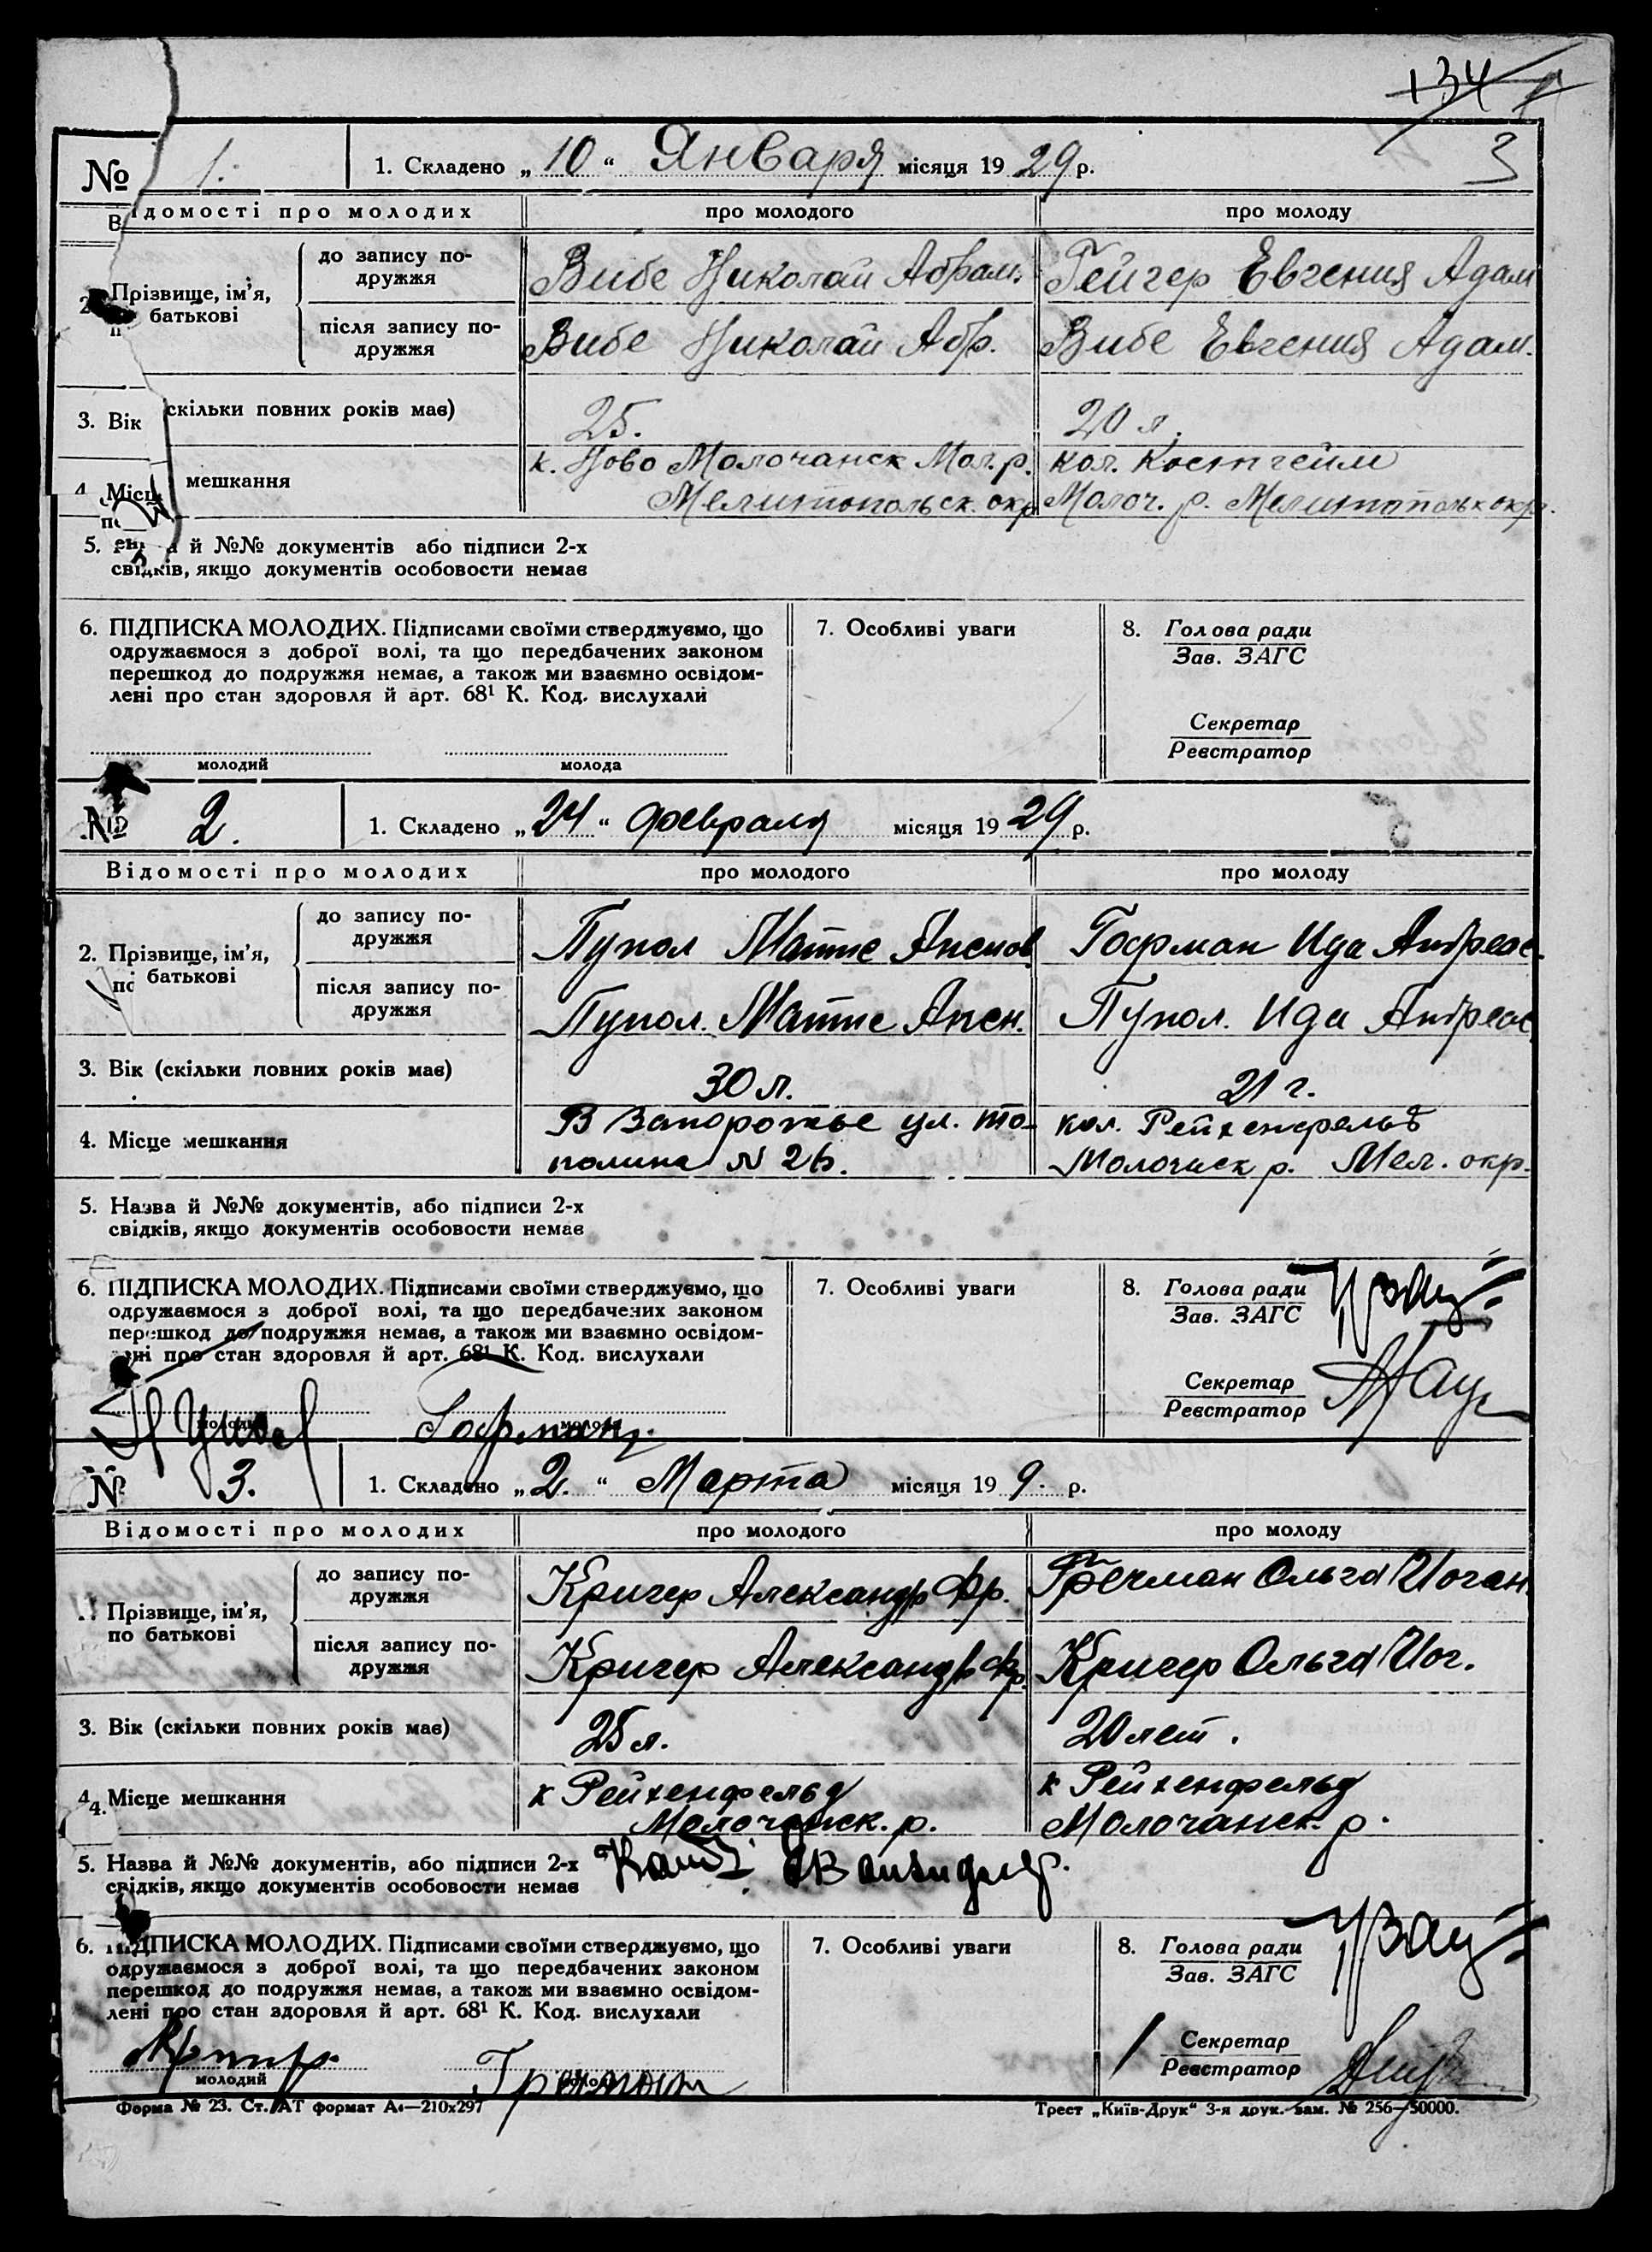 134
3
№ 1. 1. Складено „10“ Января місяця 1929 р.
Відомості про молодих про молодого про молоду
до запису по-
дружжя
Вибе Николай Абрам. Гейгер Евгения Адам
2. Прізвище, ім'я,
батькові
після запису по-
дружжя
Вибе Николай Абр. Вибе Евгения Адам.
3. Вік скільки повних років має) 25. 20 л.
4. Місц мешкання к. Ново Молочанск Мол. р. кол. Костгейм
Мелитопольск. окр Молоч. р. Мелитопольск окр.
5. й №№ документів або підписи 2-х
свідків, якщо документів особовости немає
6. ПІДПИСКА МОЛОДИХ. Підписами своїми стверджуємо, що
одружаємося з доброї волі, та що передбачених законом
перешкод до подружжя немає, а також ми взаємно освідом-
лені про стан здоровля й арт. 68¹ К. Код. вислухали
молодий молода
7. Особливі уваги
8. Голова ради
Зав. ЗАГС
Секретар
Реєстратор
№ 2. 1. Складено „24“ февраля місяця 1929 р.
Відомості про молодих про молодого про молоду
до запису по-
дружжя
Пупол Матте Гофман Ида Андреас.
2. Прізвище, ім'я,
по батькові
після запису по-
дружжя
Пупол. Матте Пупол. Ида Андреас
3. Вік (скільки повних років має) 30 л. 21 г.
4. Місце мешкання В Запорожье ул. то- кол. Рейхенфельд
полина N 26. Молочнск р. Мел. окр.
5. Назва й №№ документів, або підписи 2-х
свідків, якщо документів особовости немає
6. ПІДПИСКА МОЛОДИХ. Підписами своїми стверджуємо, що
одружаємося з доброї волі, та що передбачених законом
перешкод до подружжя немає, а також ми взаємно освідом-
лені про стан здоровля й арт. 68¹ К. Код. вислухали
Гофман
молодий молода
7. Особливі уваги
8. Голова ради
Зав. ЗАГС
Секретар
Реєстратор
№ 3. 1. Складено „2.“ Марта місяця 19 9. р.
Відомості про молодих про молодого про молоду
до запису по-
дружжя
Кригер Александр Фр. Гречман Ольга Иоган.
Прізвище, ім'я,
по батькові
після запису по-
дружжя
Кригер Александр Фр. Кригер Ольга Иог.
3. Вік (скільки повних років має) 25 л. 20 лет.
4. Місце мешкання к Рейхенфельд к Рейхенфельд
Молочанск. р. Молочанск. р.
5. Назва й №№ документів, або підписи 2-х
свідків, якщо документів особовости немає
6. ПІДПИСКА МОЛОДИХ. Підписами своїми стверджуємо, що
одружаємося з доброї волі, та що передбачених законом
перешкод до подружжя немає, а також ми взаємно освідом-
лені про стан здоровля й арт. 68¹ К. Код. вислухали
молодий
7. Особливі уваги
8. Голова ради
Зав. ЗАГС
Секретар
Реєстратор
Форма № 23. Ст. АТ формат А4—210x297 Трест „Київ-Друк“ 3-я друк. зам. № 256—50000.